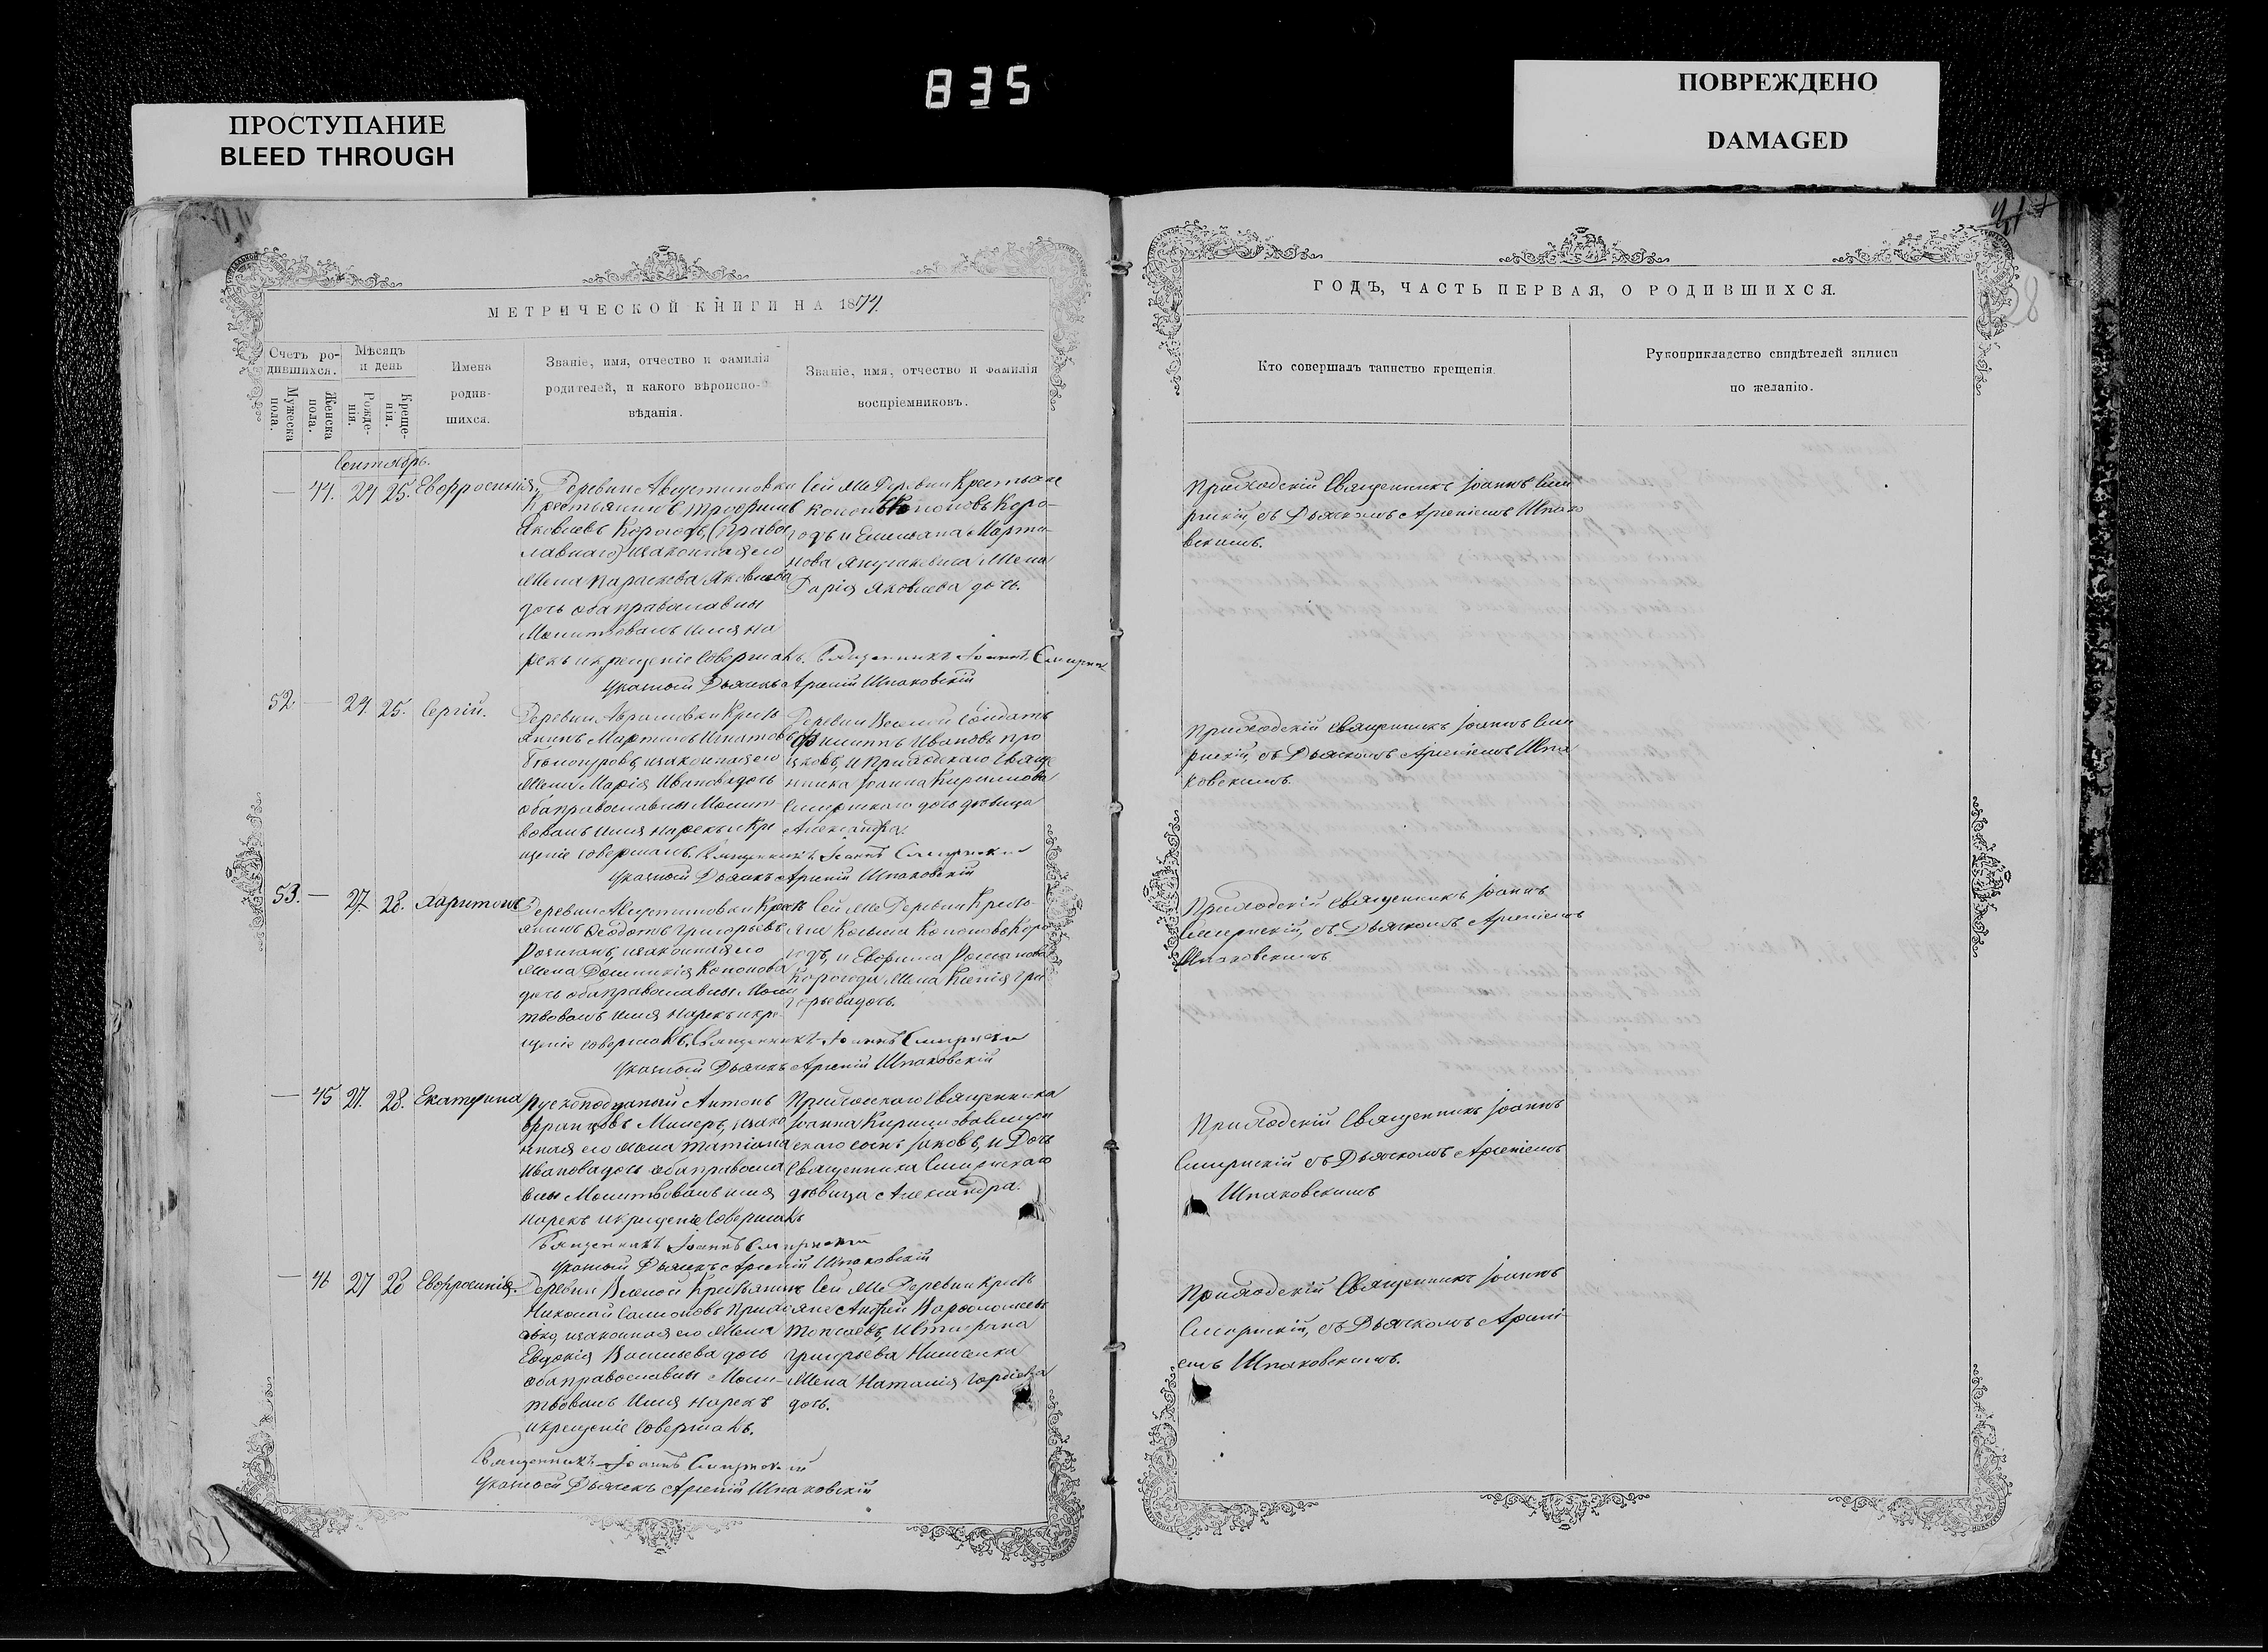 835
ПРОСТУПАНИЕ
BLEED THROUGH
ПОВРЕЖДЕНО
DAMAGED
МЕТРИЧЕСКОЙ КНИГИ НА 1874.
Счетъ ро-
дившихся.
Мужеска
пола.
Женска
пола.
Мѣсяцъ
и день
Рожде-
нія.
Креще-
нія.
Имена
родив-
шихся.
Званіе, имя, отчество и фамилія
родителей, и какого вѣроиспо-
вѣданія.
Званіе, имя, отчество и фамилія
воспріемниковъ.
Сентябрь.
— 44. 24 25. Евфросинія
Деревни Августиновки
Крестьянинъ Трофимъ
Яковлевъ Корогодъ, (право
славнаго) изаконная его
жена Параскева Яковлева
дочь оба православны
Молитвовалъ имя на
рекъ и крещеніе Совершалъ. Священникъ Іоаннъ
Указный Дьячекъ Арсеній Шпаковскій
Сей же Деревни Крестьяне
Кононовъ Коро-
годъ и Емелиана Марти-
нова жена
Дарія Яковлева дочь.
52. — 24. 25. Сергій.
Янинъ Мартинъ Игнатовъ
изаконная его
жена Марія Иванова дочь
оба православны Молит-
вовалъ имя нарекъ и Кре
щеніе Совершалъ. Священникъ Іоаннъ
Указный Дьячекъ Арсеній Шпаковскій
Деревни Солдатъ
Филиппъ Ивановъ
и Приходскаго Свяще
нника Іоанна Кириллова
дочь дѣвица
Александра.
53. — 27. 28. Харитонъ
Деревни Августиновки
янинъ Ѳеодотъ Григорьевъ
изаконная его
жена Домникія Кононова
дочь оба православны Моли
твовалъ имя Нарекъ и кре-
щеніе совершалъ. Священникъ Іоаннъ
Указный Дьячекъ Арсеній Шпаковскій
Сей же Деревни Кресть-
яне Косьма Кононовъ Коро
годъ, и Евфима Романова
Корогода жена Ксенія Гри
горьева дочь.
— 45 27. 28. Екатерина
Антонъ
Францовъ Милеръ, изако
нная его жена Татіана
Иванова дочь оба правосла
вны Молитвовалъ имя
нарекъ и крещеніе Совершалъ
Священникъ Іоаннъ
Указный Дьячекъ Арсеній Шпаковскій
Приходскаго Священника
Іоанна Кириллова
сынъ Іаковъ, и Дочь
Священника
дѣвица Александра.
— 46 27 28 Евфросинія.
Деревни Крестьянинъ
Николай
изаконная его жена
Евдокія Васильева дочь
оба православны Моли-
твовалъ Имя нарекъ
и крещеніе Совершалъ.
Священникъ Іоаннъ
Указный Дьячекъ Арсеній Шпаковскій
Сей же Деревни Кресть
яне Андрей Варфоломеевъ
Григорьева
жена Наталія Гордіева
дочь.
28
ГОДЪ, ЧАСТЬ ПЕРВАЯ, О РОДИВШИХСЯ.
Кто совершалъ таинство крещенія.
Рукоприкладство свидѣтелей записи
по желанію.
Приходскій Священникъ Іоаннъ
съ Дьячкомъ Арсеніемъ Шпако
вскимъ.
Приходскій Священникъ Іоаннъ
съ Дьячкомъ Арсеніемъ Шпа
ковскимъ.
Приходскій Священникъ Іоаннъ
съ Дьячкомъ Арсеніемъ
Шпаковскимъ
Приходскій Священникъ Іоаннъ
съ Дьячкомъ Арсеніемъ
Шпаковскимъ
Приходскій Священникъ Іоаннъ
съ Дьячкомъ Арсені-
емъ Шпаковскимъ.